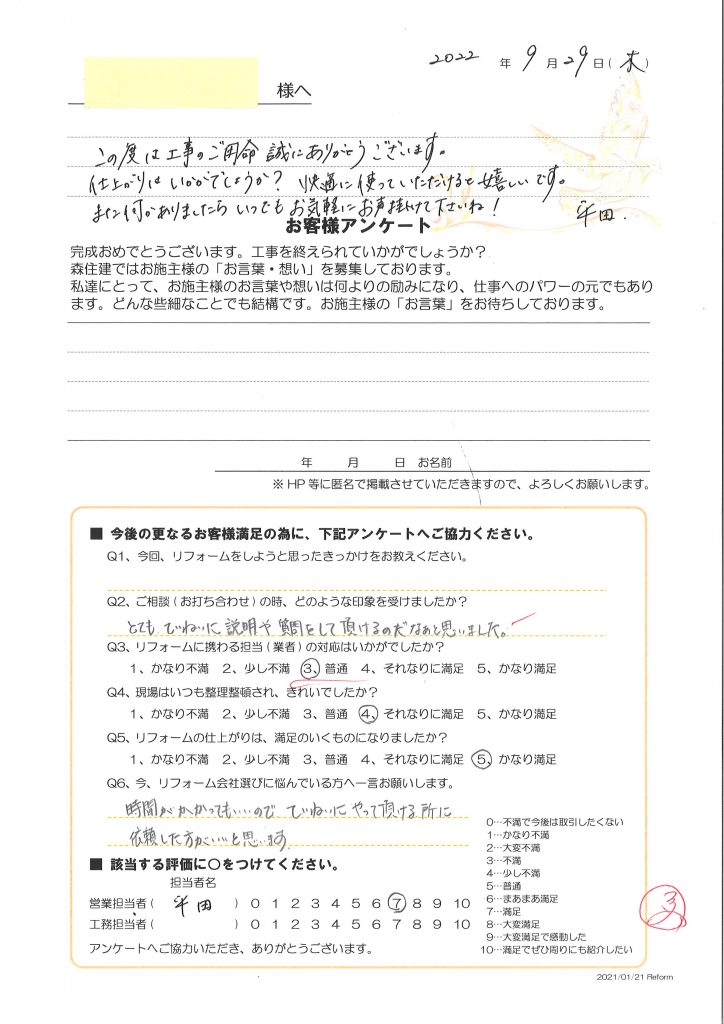 2022 年 9 月 29 日(木)
様へ
この度は工事のご用命 誠にありがとうございます。
仕上がりはいかがでしょうか? 快適に使っていただけると嬉しいです。
また何かありましたら いつでも お気軽にお声掛けて下さいね! 平田.
お客様アンケート
完成おめでとうございます。工事を終えられていかがでしょうか?
森住建ではお施主様の「お言葉・想い」を募集しております。
私達にとって、お施主様のお言葉や想いは何よりの励みになり、仕事へのパワーの元でもあり
ます。どんな些細なことでも結構です。お施主様の「お言葉」をお待ちしております。
年 月 日 お名前
※HP等に匿名で掲載させていただきますので、よろしくお願いします。
■ 今後の更なるお客様満足の為に、下記アンケートへご協力ください。
Q1、今回、リフォームをしようと思ったきっかけをお教えください。
Q2、ご相談(お打ち合わせ)の時、どのような印象を受けましたか?
とても ていねいに 説明や 質問をして頂けるのだなぁと思いました。
Q3、リフォームに携わる担当(業者)の対応はいかがでしたか?
1、かなり不満 2、少し不満 3、普通 4、それなりに満足 5、かなり満足
Q4、現場はいつも整理整頓され、きれいでしたか?
1、かなり不満 2、少し不満 3、普通 4、それなりに満足 5、かなり満足
Q5、リフォームの仕上がりは、満足のいくものになりましたか?
1、かなり不満 2、少し不満 3、普通 4、それなりに満足 5、かなり満足
Q6、今、リフォーム会社選びに悩んでいる方へ一言お願いします。
時間がかかってもいいので ていねいにやって頂ける所に
依頼した方がいいと思います
■ 該当する評価に○をつけてください。
担当者名
営業担当者( 平田 ) 0 1 2 3 4 5 6 7 8 9 10
工務担当者( ) 0 1 2 3 4 5 6 7 8 9 10
アンケートへご協力いただき、ありがとうございます。
0…不満で今後は取引したくない
1…かなり不満
2…大変不満
3…不満
4…少し不満
5…普通
6…まあまあ満足
7…満足
8…大変満足
9…大変満足で感動した
10…満足でぜひ周りにも紹介したい
2021/01/21 Reform